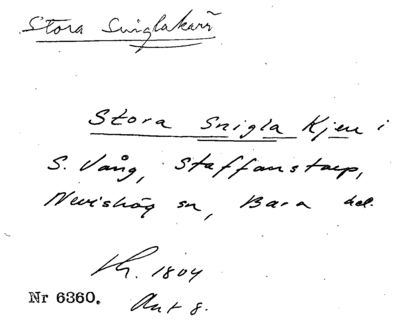 Stora Sniglakärr
Stora Snigla Kjeu i
S. Vång, Staffanstorp,
Nevishög sn, Bara hd.
Kh. 1804
Nr 6360. Akt 8.